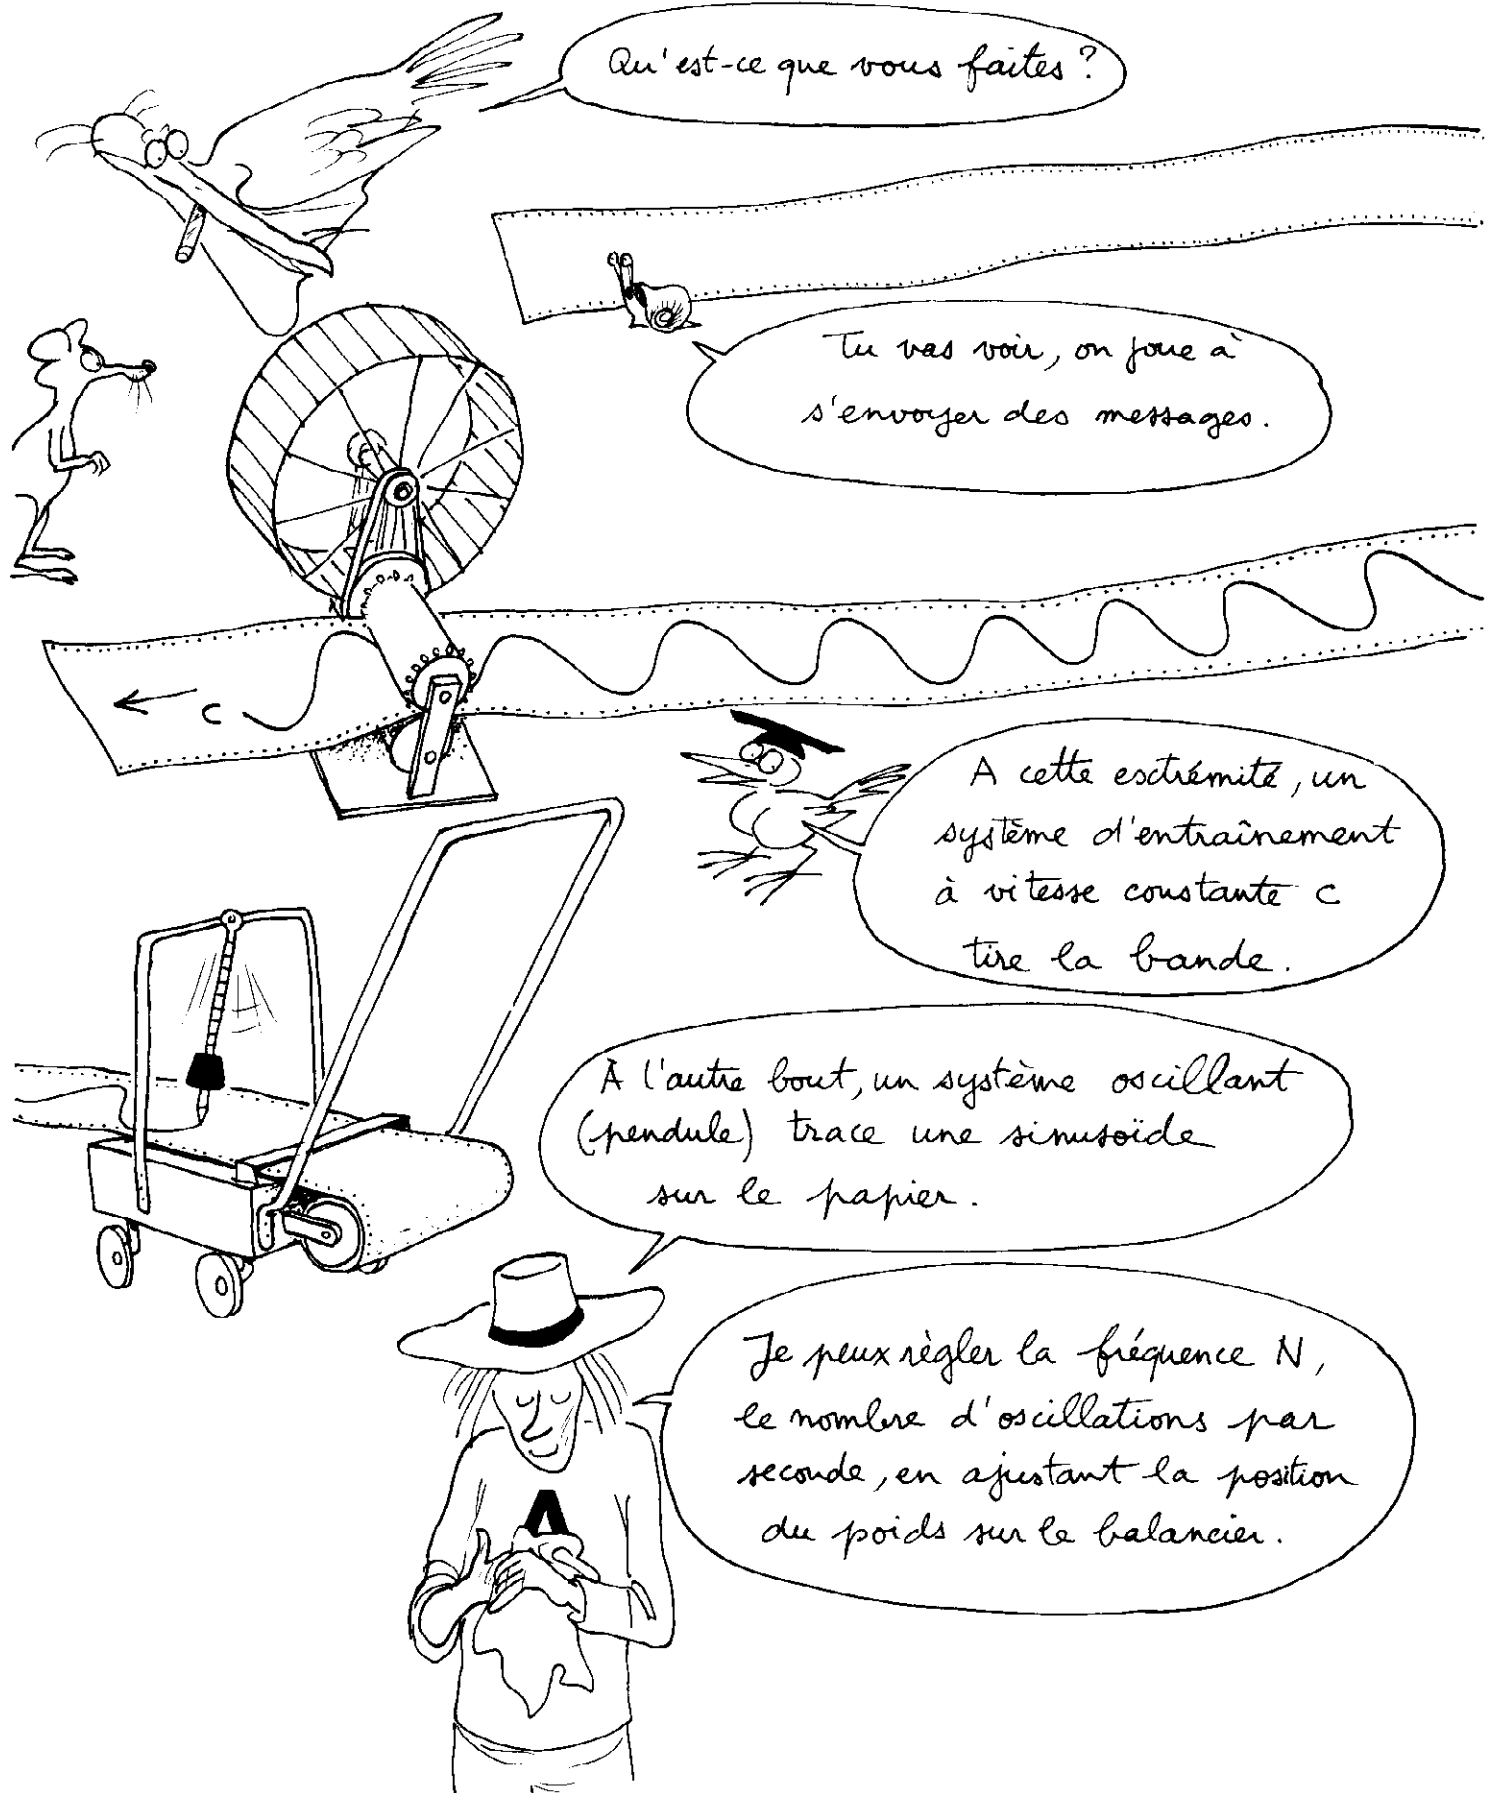 Qu'est-ce que vous faites ?
Tu vas voir, on joue à
s'envoyer des messages.
C
A cette extrémité, un
système d'entraînement
à vitesse constante C
tire la bande.
À l'autre bout, un système oscillant
(pendule) trace une sinusoïde
sur le papier.
Je peux règler la fréquence N,
le nombre d'oscillations par
seconde, en ajustant la position
du poids sur le balancier.
A